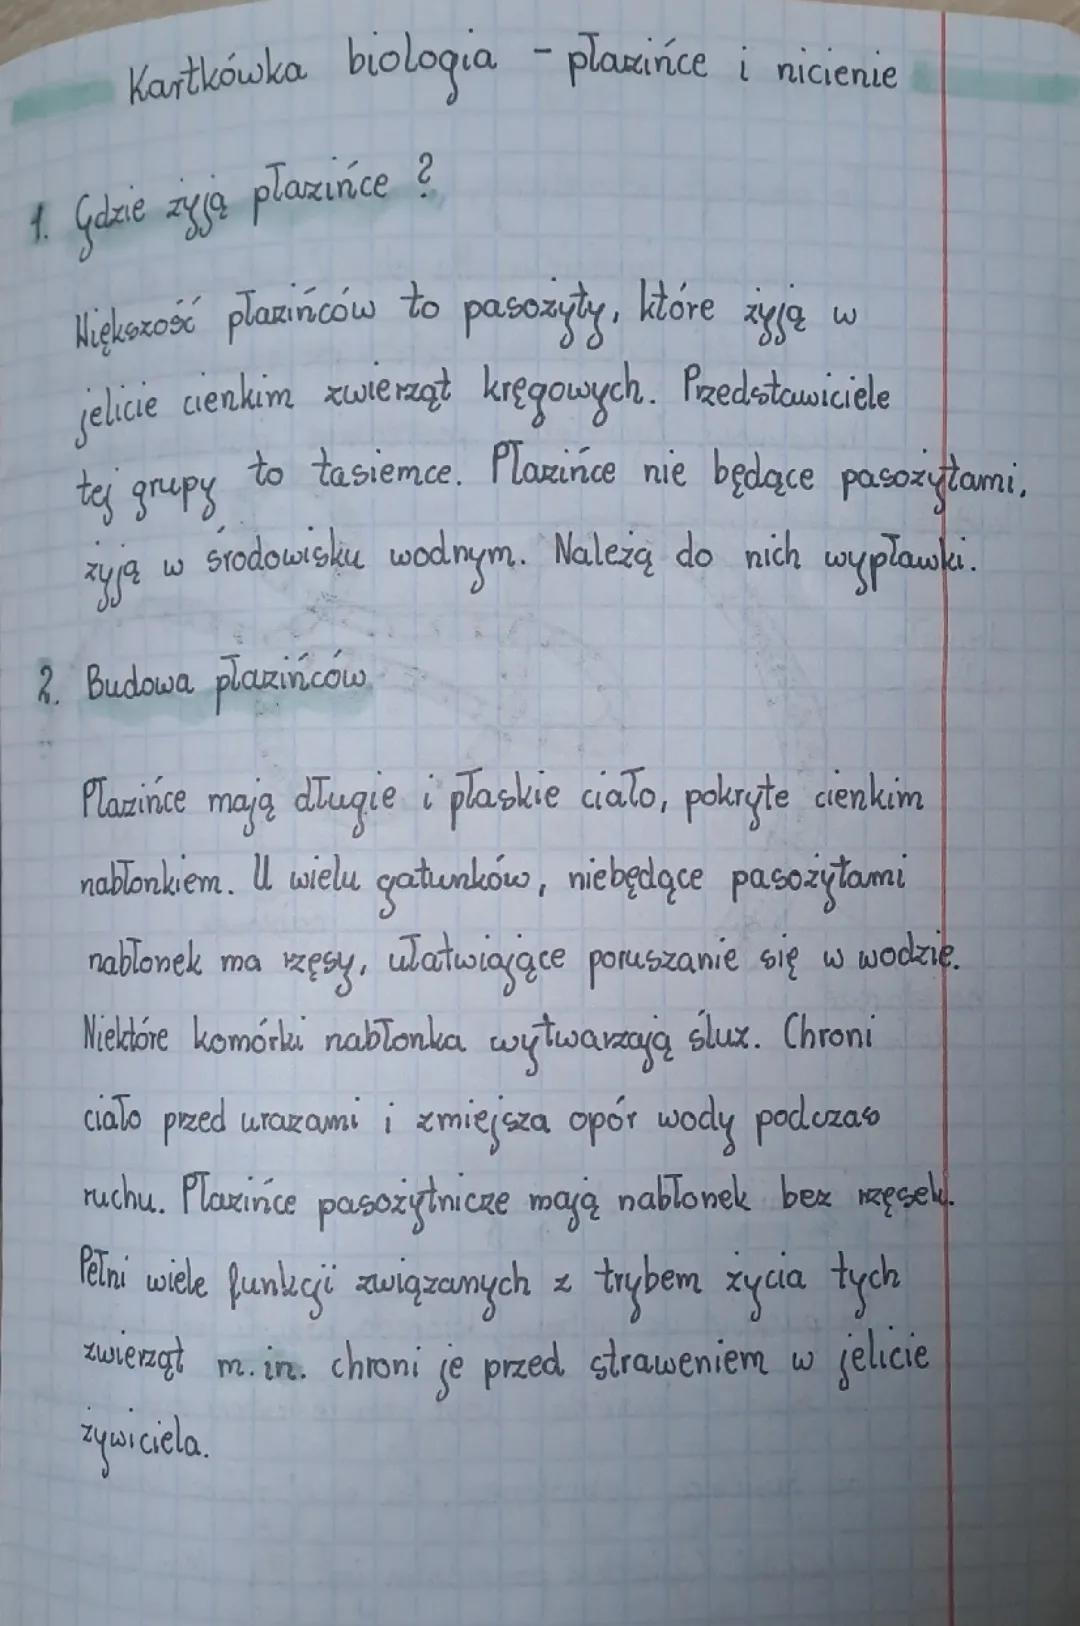 Kartkówka biologia - płazińce i nicienie
1. Gdzie żyją płazińce ?
Większość płazińców to pasożyty, które żyją w
jelicie cienkim zwierząt kręgowych. Przedstawiciele
tej grupy to tasiemce. Płazińce nie będące pasożytami,
żyją w środowisku wodnym. Należą do nich wypławki.
2. Budowa płazińców
Płazińce mają długie i płaskie ciało, pokryte cienkim
nabłonkiem. U wielu gatunków, niebędące pasożytami
nabłonek ma rzęsy, ułatwiające poruszanie się w wodzie.
Niektóre komórki nabłonka wytwarzają śluz. Chroni
ciało przed urazami i zmiejsza opór wody podczas
ruchu. Płazińce pasożytnicze mają nabłonek bez rzęsek.
Pełni wiele funkcji związanych z trybem życia tych
zwierząt m.in. chroni je przed straweniem w jelicie
żywiciela.